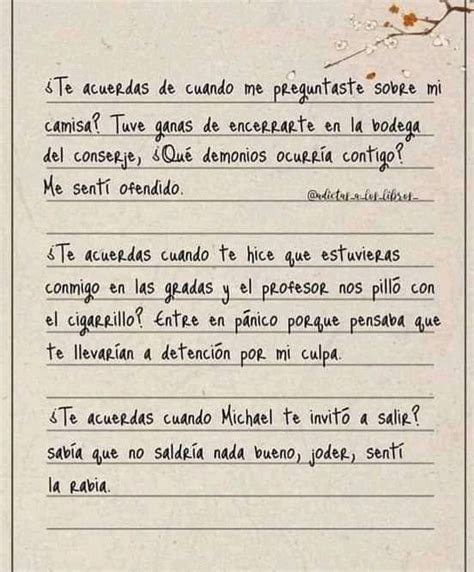 ¿Te acuerdas de cuando me preguntaste sobre mi
camisa? Tuve ganas de encerrarte en la bodega
del conserje, ¿Qué demonios ocurría contigo?
Me sentí ofendido.
@adictas_a_los_libros_
¿Te acuerdas cuando te hice que estuvieras
conmigo en las gradas y el profesor nos pilló con
el cigarrillo? Entre en pánico porque pensaba que
te llevarían a detención por mi culpa.
¿Te acuerdas cuando Michael te invitó a salir?
sabía que no saldría nada bueno, joder, sentí
la rabia.